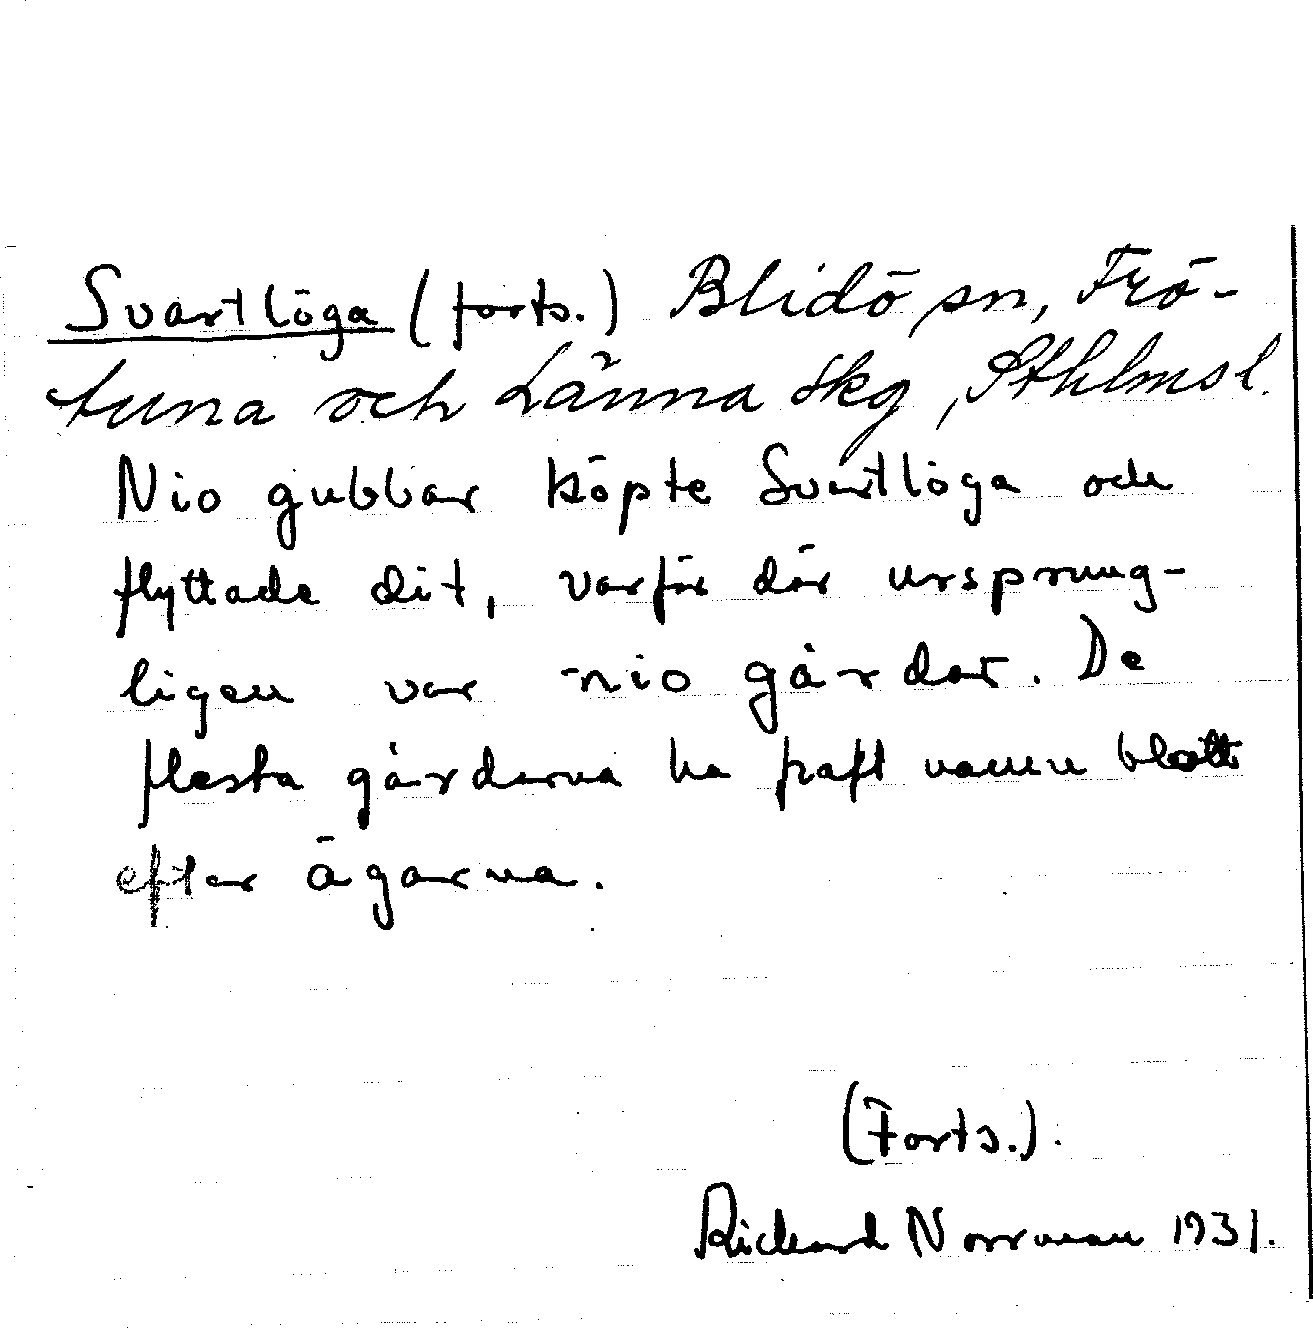 Svartlöga (forts.) Blidö sn, Frö-
tuna och Länna skg, Sthlmsl.
Nio gubbar köpte Svartlöga och
flyttade dit, varför där ursprung-
ligen var nio gårdar. De
flesta gårdarna ha haft namn blott
efter ägarna.
(Forts.).
Rickard Norrman 1931.